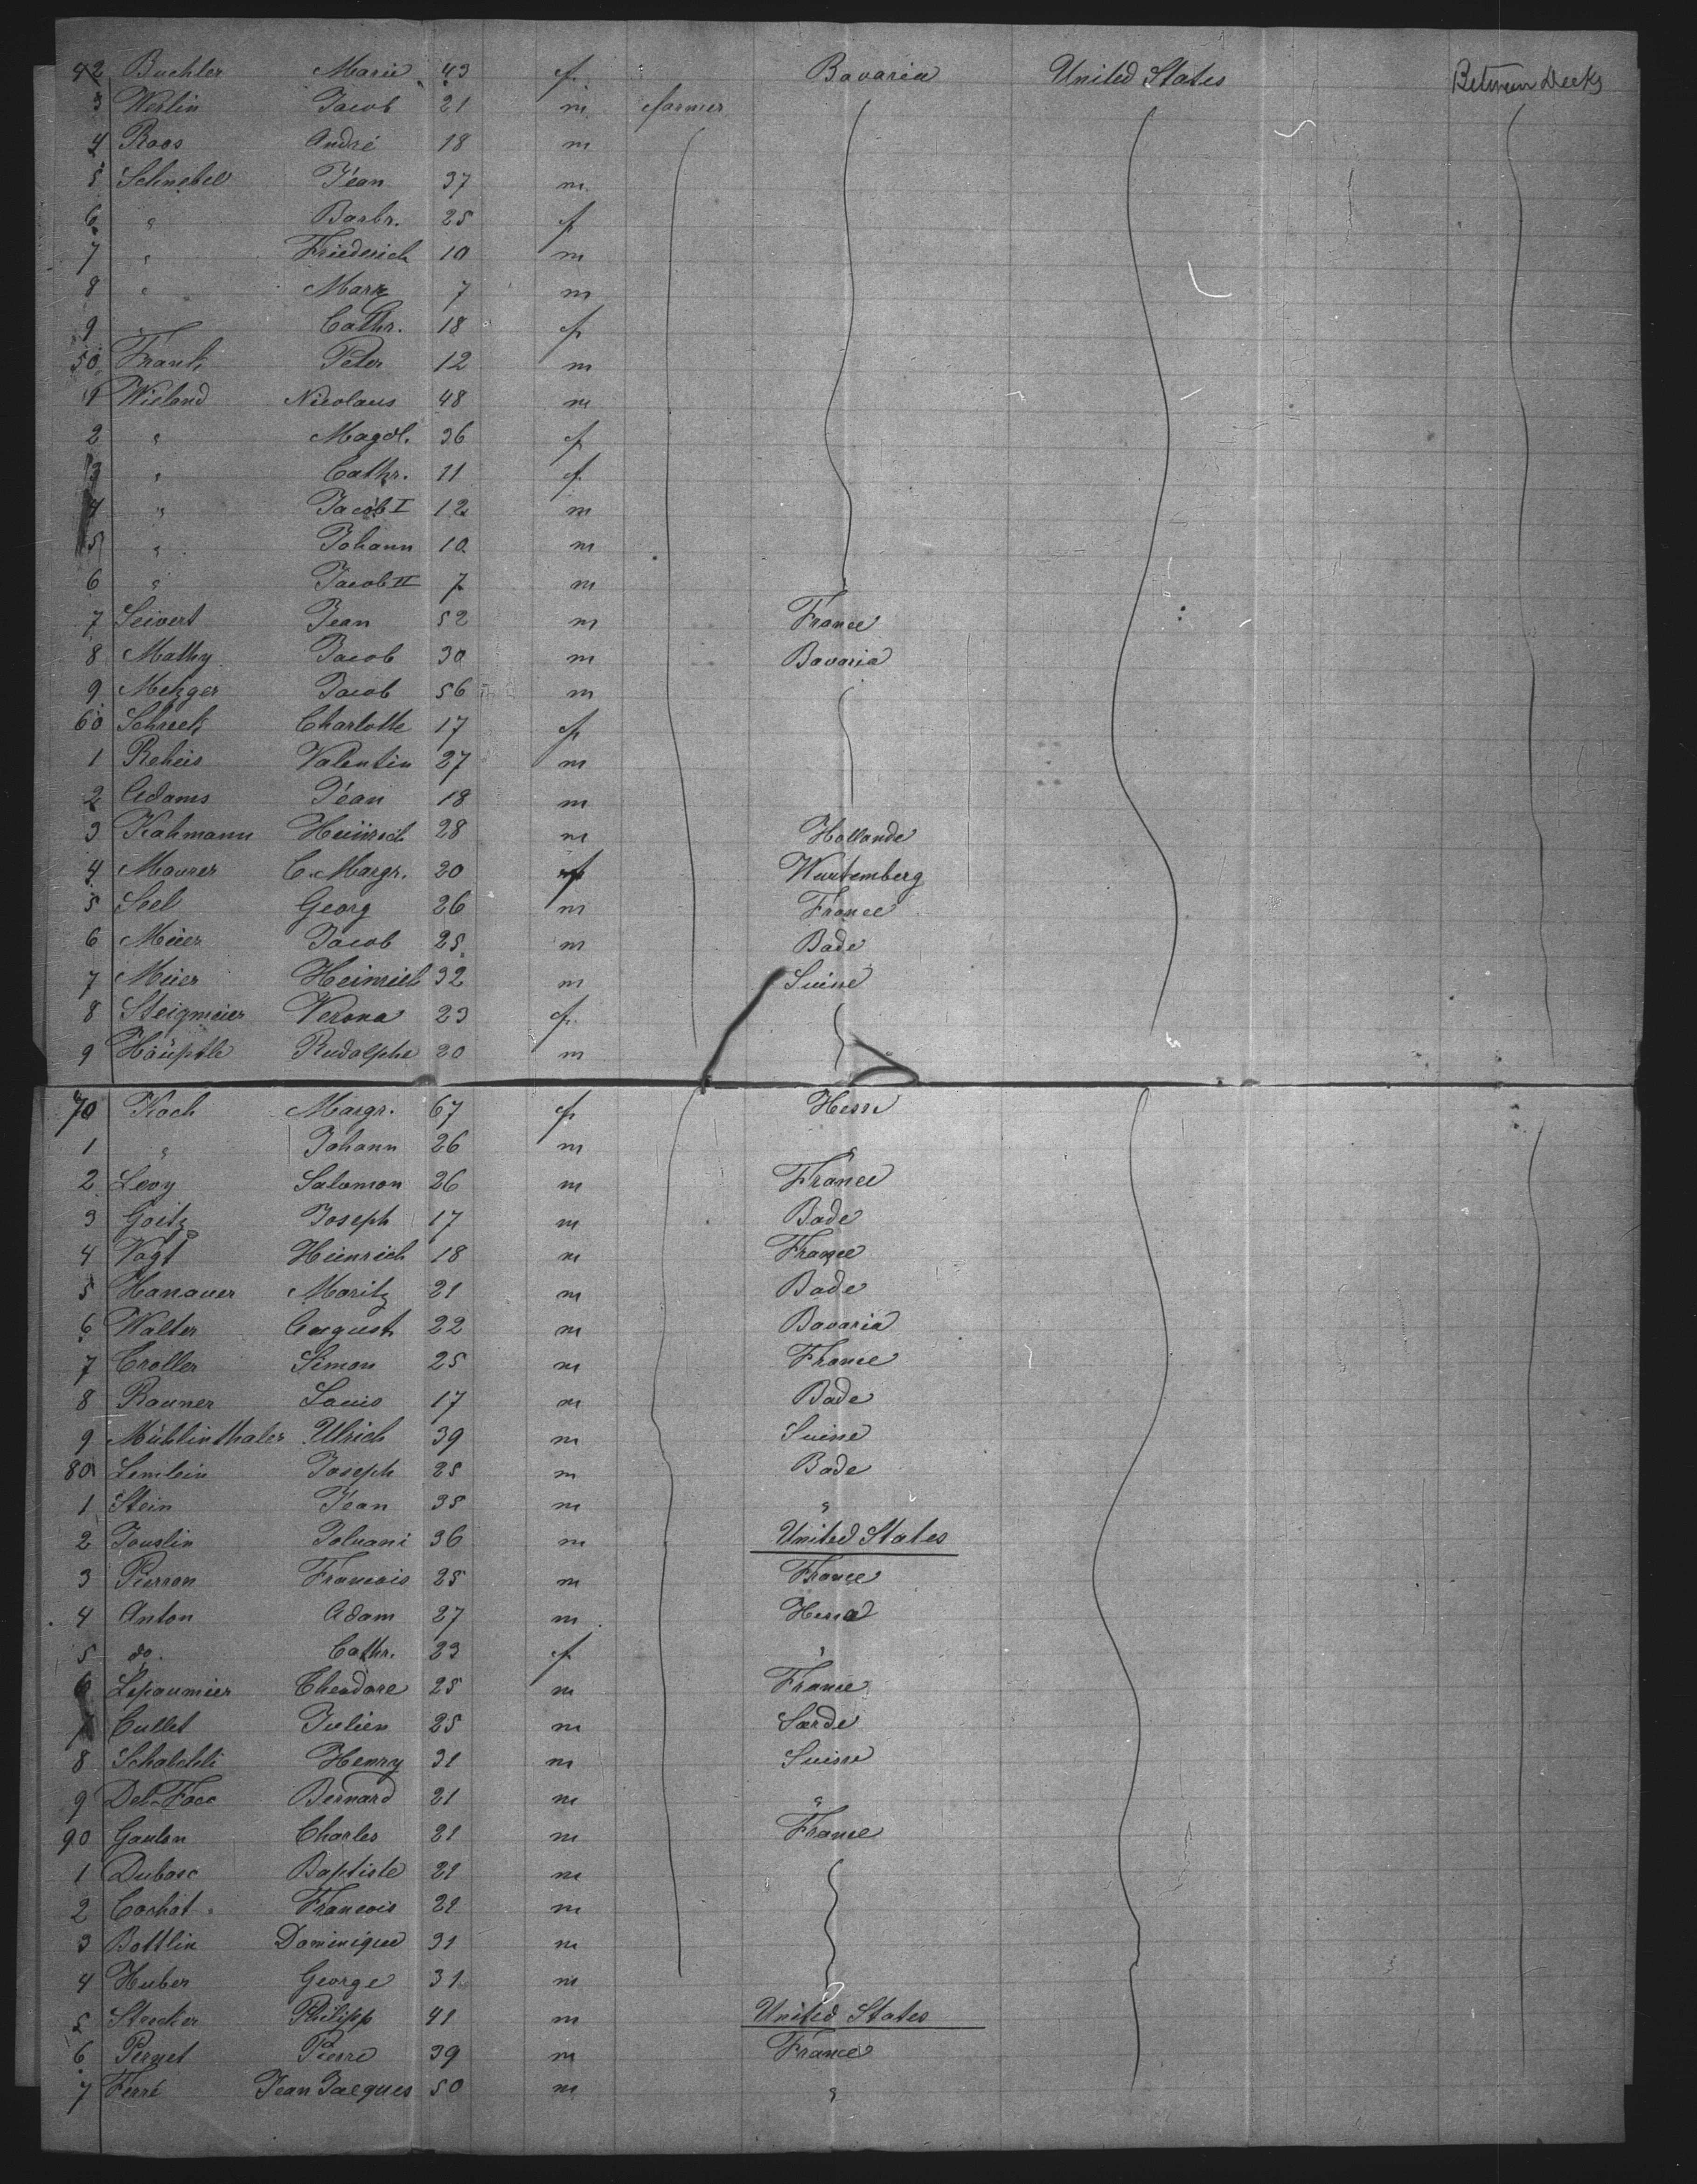 42 Buchler Marie 43 f. Bavaria United States Between Decks
3 Werlin Jacob 21 m farmer
4 Roos André 18 m
5 Schnebel Jean 37 m.
6 " Barbr. 25 f
7 " Friederich 10 m
8 " Marx 7 m
9 " Cathr. 18 f
50 Frank Peter 12 m
1 Wieland Nicolaus 48 m
2 " Magdl. 36 f
3 " Cathr. 11 f.
4 " Jacob I 12 m
5 " Johann 10 m
6 " Jacob II 7 m
7 Seivert Jean 52 m France
8 Mathy Jacob 30 m Bavaria
9 Metzger Jacob 56 m
60 Schreck Charlotte 17 f
1 Reheis Valentin 27 m
2 Adams Jean 18 m
3 Kahmann Heinrich 28 m Hollande
4 Maurer C. Margr. 20 f Wurtemberg
5 Seel Georg 26 m France
6 Meier Jacob 25 m Bade
7 Meier Heinrich 32 m Suisse
8 Steigmeier Verona 23 f.
9 Häuptle Rudolphe 20 m
70 Koch Margr. 67 f Hesse
1 " Johann 26 m "
2 Levy Salomon 26 m France
3 Goetz Joseph 17 m Bade
4 Vogt Heinrich 18 m France
5 Hanauer Moritz 21 m Bade
6 Walter August 22 m Bavaria
7 Croller Simon 25 m France
8 Rauner Louis 17 m Bade
9 Mühlinthaler Ulrich 39 m Suisse
80 Lemlein Joseph 25 m Bade
1 Stein Jean 35 m "
2 Touslin 36 m United States
3 Pierron Francois 25 m France
4 Anton Adam 27 m Hessa
5 do. Cathr. 23 f "
6 Lepaumier Theodore 25 m France
7 Cullet Julien 25 m Sarde
8 Schalchli Henry 31 m Suisse
9 Del-Face Bernard 21 m "
90 Gaulon Charles 21 m France
1 Dubosc Baptiste 21 m
2 Cochat Francois 21 m
3 Bottlin Dominique 31 m
4 Huber George 31 m
5 Strecker Philipp 41 m United States
6 Pernet Pierre 39 m France
7 Ferré Jean Jacques 50 m "